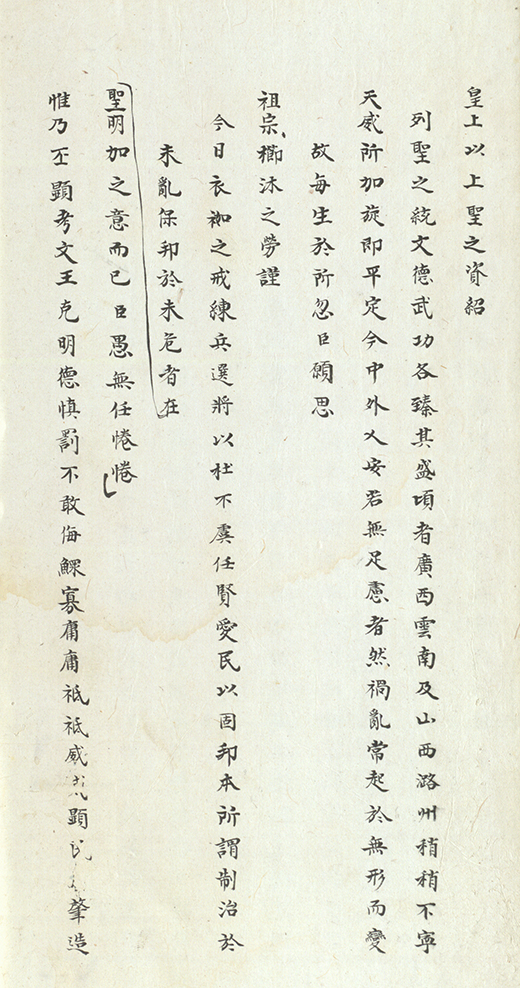 皇上以上聖之資紹
列聖之統文德武功各臻其盛頃者廣西雲南及山西潞州稍稍不寧
天威所加旋即平定今中外乂安若無足慮者然禍亂常起於無形而變
故每生於所忽臣願思
祖宗櫛沐之勞謹
今日衣袽之戒練兵選將以杜不虞任賢愛民以固邦本所謂制治於
未亂保邦於未危者在
聖明加之意而已臣愚無任惓惓
惟乃丕顯考文王克明德慎罰不敢侮鰥寡庸庸祗祗威威顯民 肇造